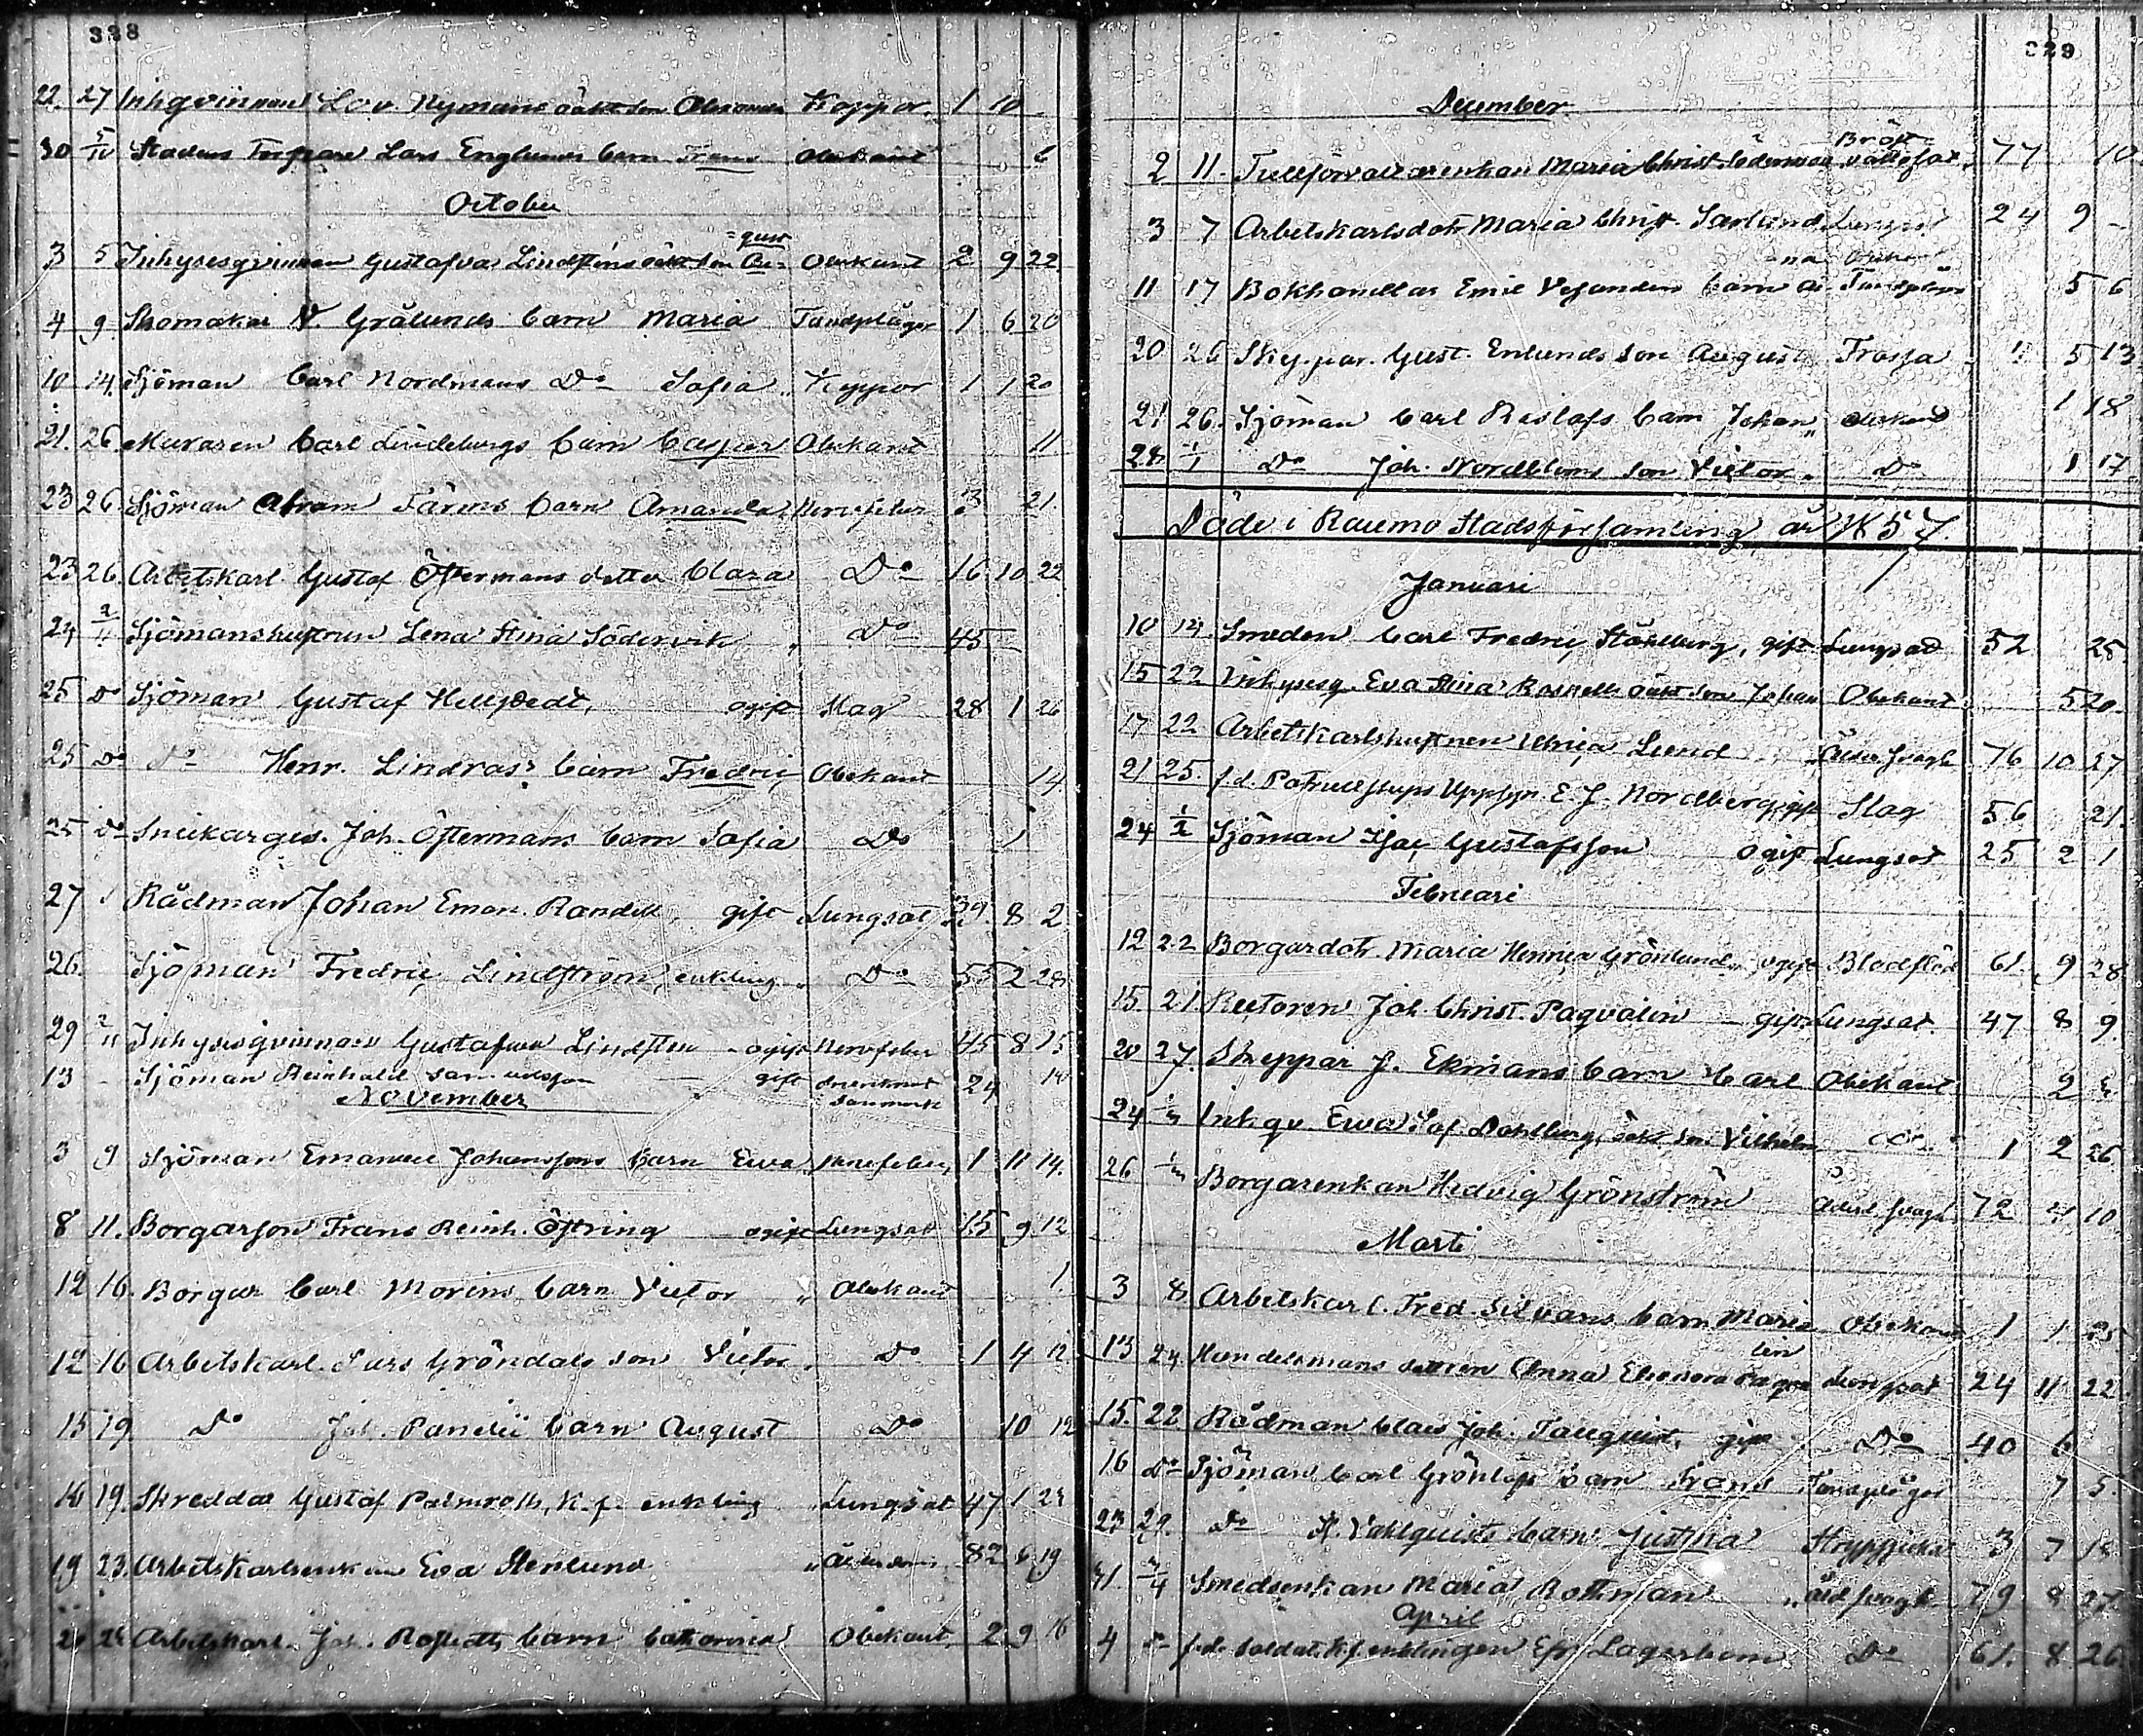 328
22. 27 Inhqvinnans Lov. Nymans oäkta son Koppor. 1 10
30 5/10 Stadens Lars Englunds barn Frans Obekant 6
October
=gust
3 5 Inhysesqvinnan Gustafva Lindsténs oäkta son Au= Obekant 2 9 22
4 9 Skomakar Grålunds barn Maria Tandplågor 1 6 20
10 14. Sjöman Carl Nordmans Do Sofia „ Koppor 1 1 20
21. 26. Muraren Carl Lindebergs barn Casper Obekant 11
23 26. Sjöman Abram Färms barn Amanda Nervfeber 3 21.
23 26. Arbetskarl Gustaf Östermans dotter Clara Do 16 10 22
24 2/11 Sjömanshustrun Lena Stina Södervik „ Do 45 –
25 Do Sjöman Gustaf Hellstedt, ogift Slag 28 1 26
25 Do Do Henr. Lindras's barn Fredric Obekant 14
25 Do Snickarges. Joh. Östermans barn Sofia Do 1
27 1 Rådman Johan Eman. Randell, gift Lungsot 39 8 2
26. Sjöman Fredric Lindström, enkling „ Do 55 2 28
29 2/11 Inhysesqvinnan Gustafva Lindsten – ogift Nervfeber 45 8 15
13 – Sjöman Reinhold Samuelsson – gift drunknat Danmark 24 14
November
3 9 Sjöman Emanuel Johanssons barn Ewa Nervfeber 1 11 14.
8 11. Borgarson Frans Reinh. Östring – ogift Lungsot 15 9 12
12 16. Borgar Carl Morins barn Victor „ Obekant 1.
12 16 Arbetskarl. Lars Gröndals son Victor „ Do 1 4 12
15 19 Do Joh. Panelii barn August Do 10 12
16 19. Skreddar Gustaf Palmroth, k. f. enkling „ Lungsot 47 1 24
19 23. Arbetskarlsenkan Eva Stenlund „ Ålderdom 82 6 19
Arbetskarl. Joh. barn Catharina Obekant, 2 9 16
329
December
Bröst=
2 11. Tullförvaltarenkan Maria Christ. Söderman 77 10
3 7 Arbetskarlsdotr Maria Christ. Lungs. 24 9 –
=na
11 17 Bokhandlar Emil barn Tandplåg 5 6
20 26 Skepar. Gust. Enlunds son August Trossa 1 5 13
21 26. Sjöman Carl Rislafs barn Johan „ Obekant 1 18
28 1/1 Do Joh. Nordbloms son Victor „ Do 1 17
Döde i Raumo Stadsförsamling år 1857.
Januari
10 14. Smeden Carl Fredric Ståhlberg, gift Lungsot 52 28.
15 22 Inhysesq. Eva Stina oäkt son Johan Obekant 5 20.
17 22 Arbetskarlshustrun Ulrica Lund „ Ålder.svagh 76 10 27
21 25. f.d. Patrullskeps Uppsyn. E. J. Nordberg, gift Slag 56 21.
24 1/2 Sjöman Isac Gustafsson ogift Lungsot 25 2 1
Februari
12 22 Borgardotr. Maria Henrica Grönlund, ogift Blodflöd 61. 9 28
15. 21 Rectoren Joh. Christ. Paqvalin – gift Lungsot. 47 8 9.
20 27. Skeppar J. Ekmans barn Carl Obekant 2
24 1/3 Inhqv. Ewa Sof. Dahlberg, oäkt son Vilhelm Do 1 2 26
26 Borgarenkan Hedvig Grönström Ålderd.svagh 72 10
Marti
3 8 Arbetskarl. Fred. Silvans barn Maria Obekant 1 1 25
lin
13 24 Handelsmans dottren Anna Eleonora Paqva Lungsot 24 11 22
15. 22 Rådman Claes Joh. gift Do 40 6
16 Do Sjöman Carl Grönlöfs barn Frans Tandplågor 7 5.
23 29. Do Vahlquists barn Justina Strypsjuka 3 7 18
31. 2/4 Smedsenkan Maria Rothman „ ålds.svagh. 79 8 27
April
4 Do f.d. soldat. k.f. enklingen Efr Lagerbom Do 61. 8 26